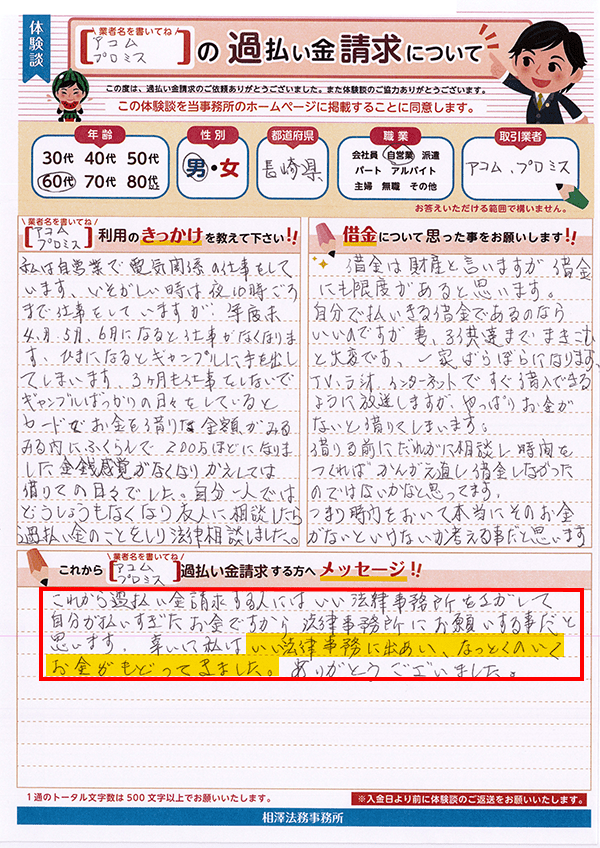 体験談
業者名を書いてね
アコム
プロミス
の 過払い金請求について
この度は、過払い金請求のご依頼ありがとうございました。また体験談のご協力ありがとうございます。
この体験談を当事務所のホームページに掲載することに同意します。
年齢
30代 40代 50代
60代 70代 80代以上
性別
男・女
都道府県
長崎県
職業
会社員 自営業 派遣
パート アルバイト
主婦 無職 その他
取引業者
アコム、プロミス
お答えいただける範囲で構いません。
業者名を書いてね
アコム
プロミス
利用のきっかけを教えて下さい!!
私は自営業で電気関係の仕事をして
います、いそがしい時は夜10時ごろ
まで仕事をしていますが、年度末
4月、5月、6月になると仕事がなくなりま
す、ひまになるとギャンブルに手を出し
てしまいます、3ヶ月も仕事をしないで
ギャンブルばっかりの日々をしていると
カードでお金を借りた金額がみる
みる内にふくらんで 200万ほどになりま
した金銭感覚がなくなりかえしては
借りての日々でした。自分一人では
どうしようもなくなり友人に相談したら
過払い金のことをしり法律相談しました。
借金について思った事をお願いします!!
借金は財産と言いますが借金
にも限度があると思います。
自分で払いきる借金であるのなら
いいのですが妻、子供達までまきこむ
と大変です、一家ばらばらになります、
TV、ラジオ、インターネットですぐ借入できる
ように放送しますが、やっぱりお金が
ないと借りてしまいます。
借りる前にだれかに相談し時間を
つくればかんがえ直し借金しなかった
のではないかなと思ってます。
つまり時間をおいて本当にそのお金
がないといけないか考える事だと思います
これから
業者名を書いてね
アコム
プロミス
過払い金請求 する方へ メッセージ!!
これから過払い金請求する人にはいい法律事務所をさがして
自分が払いすぎたお金ですから法律事務所にお願いする事だと
思います、幸いに私はいい法律事務に出あい、なっとくのいく
お金がもどってきました。ありがとうございました。
1通のトータル文字数は500文字以上でお願いいたします。
※入金日より前に体験談のご返送をお願いいたします。
相澤法務事務所